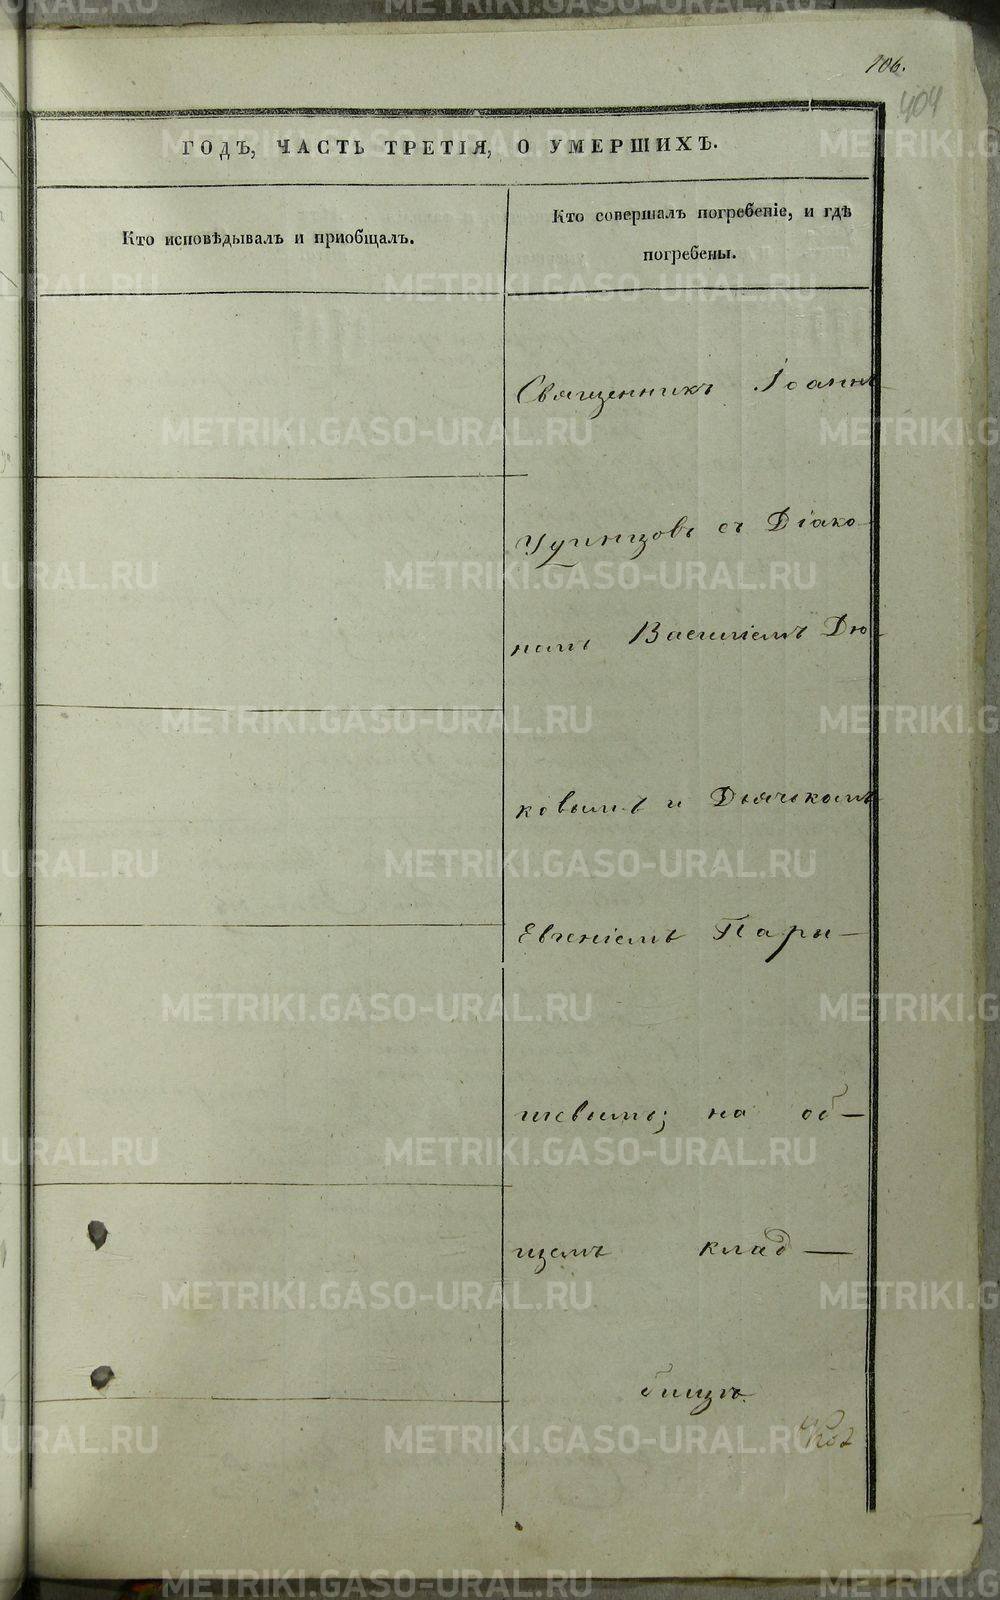 106.
404
ГОДЪ, ЧАСТЬ ТРЕТІЯ, О УМЕРШИХЪ.
Кто исповѣдывалъ и приобщалъ.
Кто совершалъ погребеніе, и гдѣ
погребены.
Священникъ Іоаннъ
Удинцовъ съ Діако-
номъ Василіемъ Дю-
ковымъ и Дьячкомъ
Евгеніемъ Пары-
шевымъ; на об-
щемъ клад-
бищѣ.
METRIKI.GASO-URAL.RU